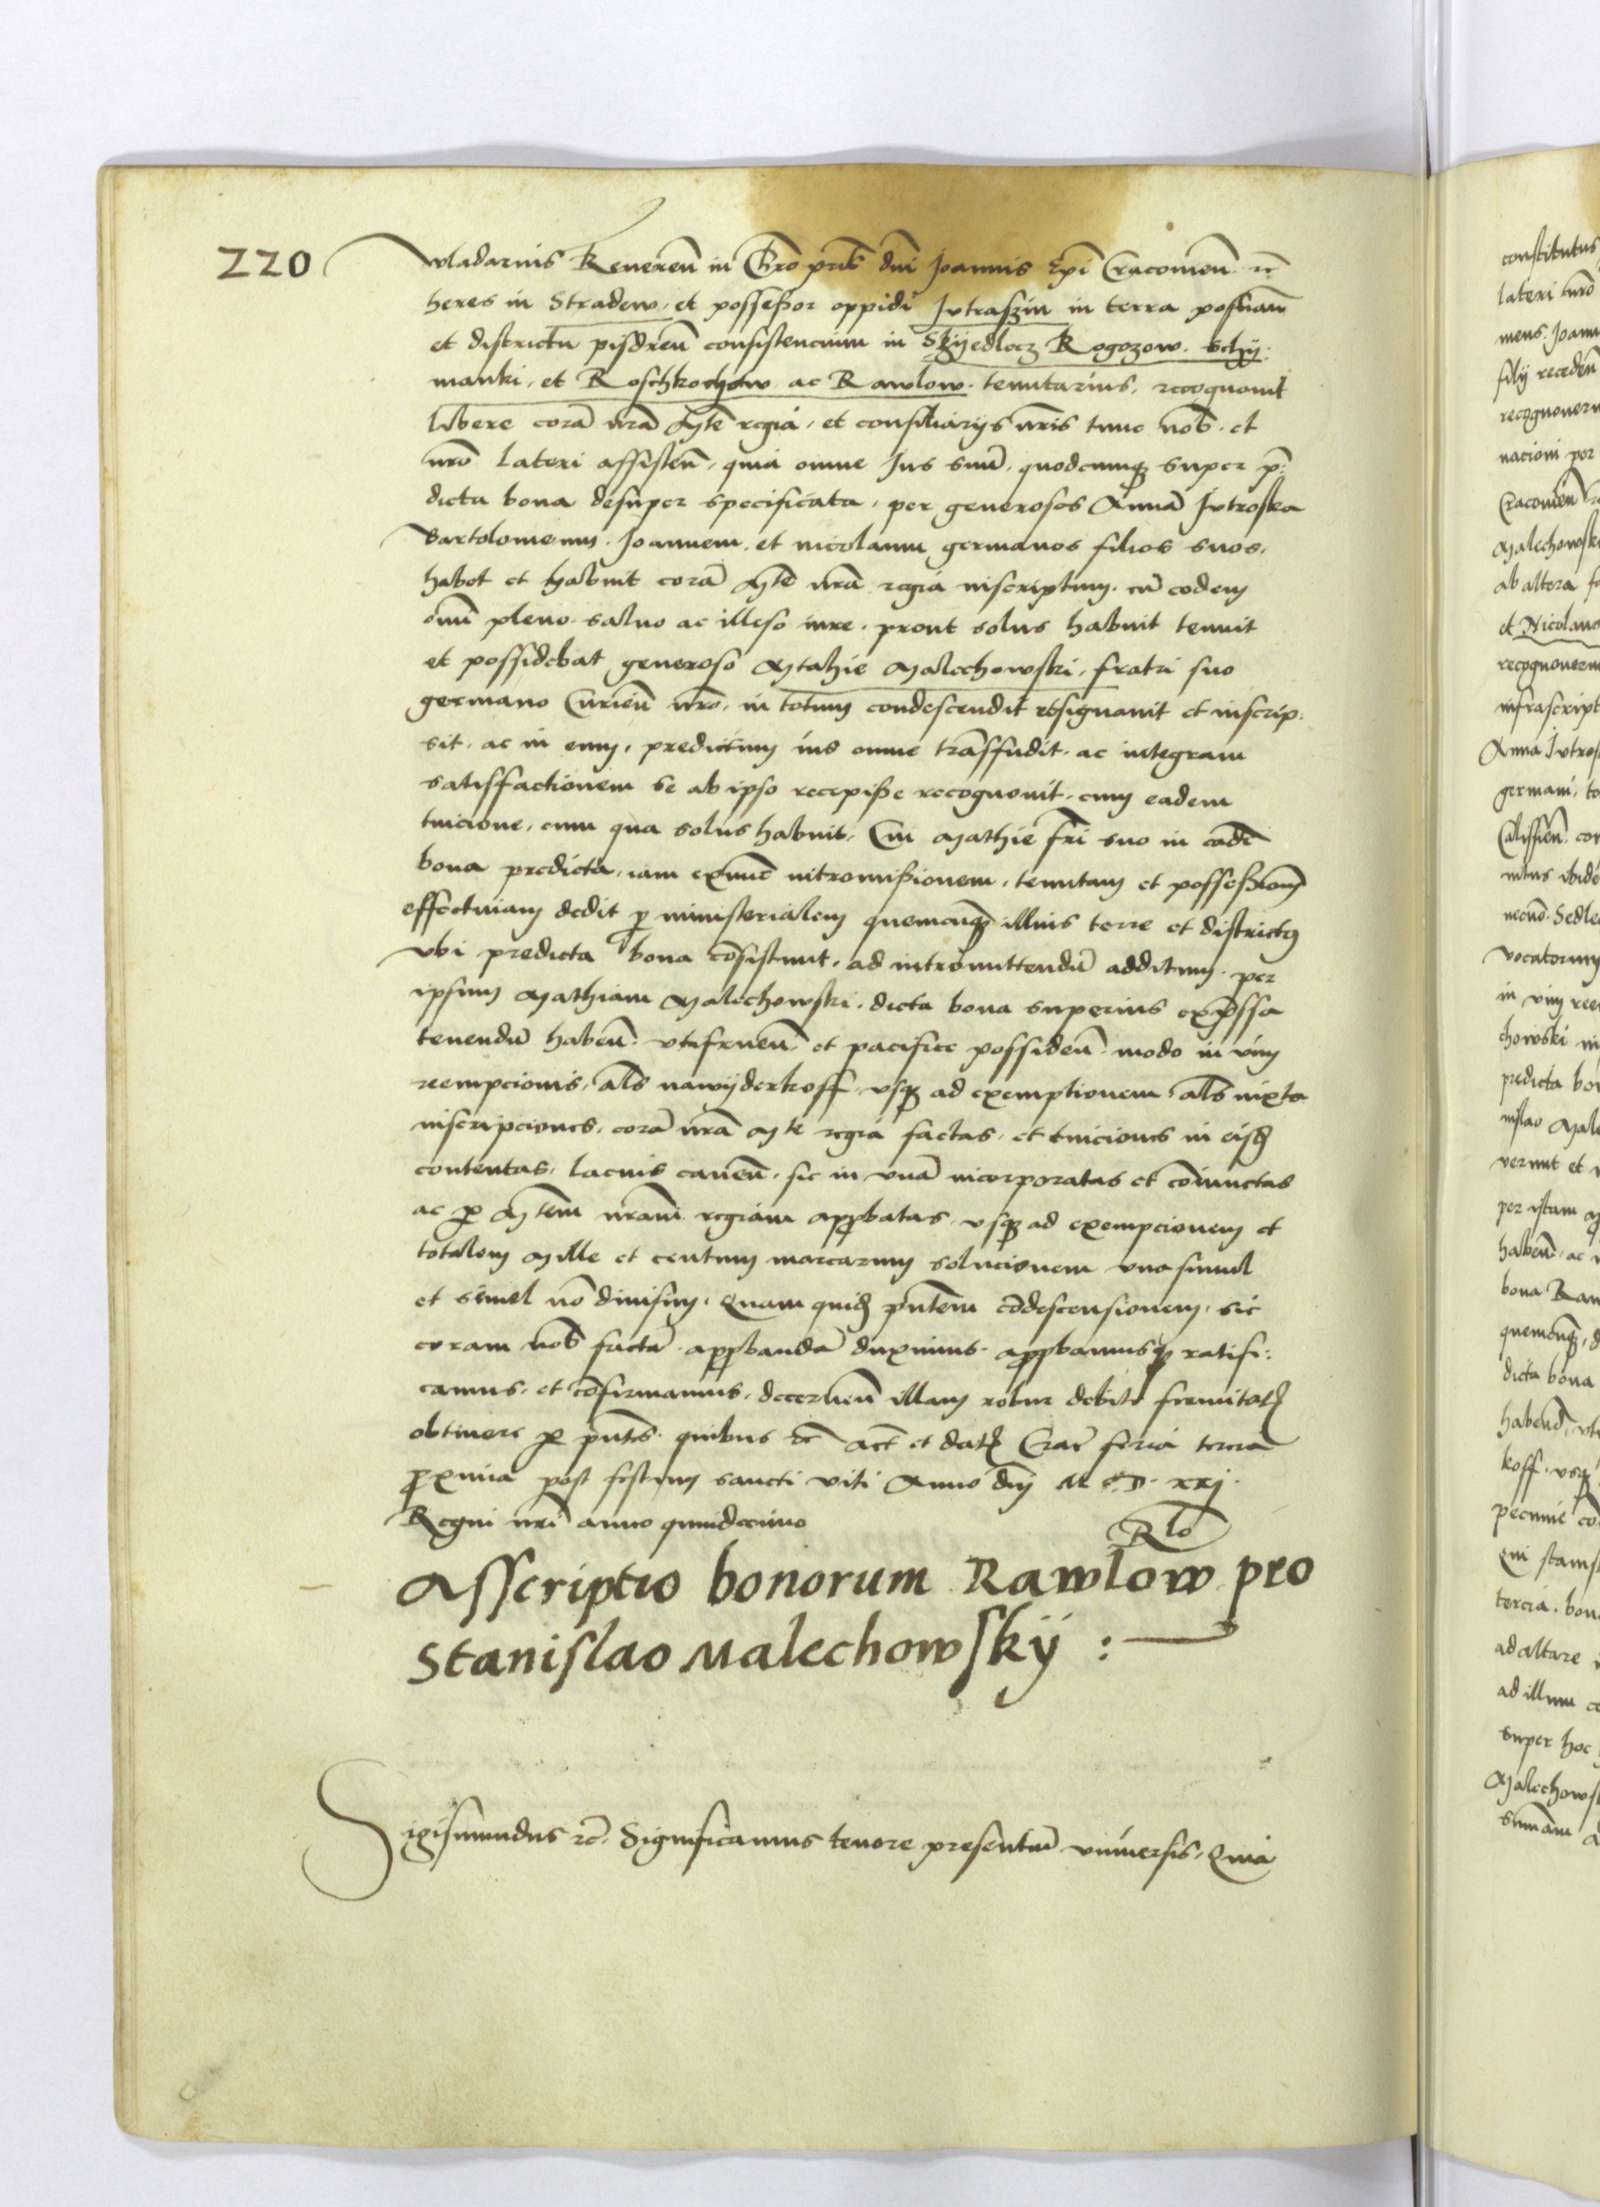 220
wladarius Reveren̄ in Chrō pr̄is dn̄i Joannis Ep̄i Cracovien̄ rc̄
heres in Stradew, et possessor oppidi Jutraszin in terra posnan̄
et districtu pisdren̄ consistencium in Szyedlecz Rogozow. Schy:
manki, et Roschkochow ac Rawlow. tenutarius, recognovit
libere corā nr̄a M̄te regia, et consiliarijs nr̄is tunc nob̄. et
nr̄o lateri assisten̄, quia omne Jus suū, quodcumq̄ super p̄:
dicta bona desuper specificata, per generosos Annā Jutroska
Bartolomeum. Joannem, et nicolaum germanos filios suos,
habet et habuit corā M̄te nr̄a regia inscriptum. cū eodem
om̄i pleno salvo ac illeso iure, prout solus habuit tenuit
et possidebat generoso Mathie Malechowski, fratri suo
germano Curien̄ nr̄o, in totum condescendit resignavit et inscrip:
sit, ac in eum, predictum ius omne trāsfudit, ac integram
satisfactionem se ab ipso recepisse recognovit, cum eadem
tuicione, cum qua solus habuit, Cui Mathie fr̄i suo in eadē
bona predicta, iam ex nūc intromissionem, tenutam et possessionē
effectivam dedit p̄ ministerialem quemcūq̄ illius terre et districtus
ubi predicta bona cōsistunt, ad intromittendū additum, per
ipsum Mathiam Malechowski, dicta bona superius exp̄ssa
tenendū haben̄. utifruen̄ et pacifice possiden̄. modo in vim
reempcionis, al̄s nawyderkoff, usq̄ ad exemptionem, al̄s iuxta
inscripciones, corā nr̄a M̄te regia factas, et tuiciones in eisd̄
contentas, lacius caven̄, sic in unā incorporatas et cōiunctas
ac p̄ M̄tem nr̄am regiam app̄batas, usq̄ ad exempcionem et
totalem Mille et centum marcarum solucionem una simul
et semel nō divisim, Quam quid̄ p̄ntem cōdescensionem, sic
coram nob̄ factā app̄bandā duximus. app̄bamusq̄ ratifi:
camus, et cōfirmamus, decernen̄ illam robur debite firmitat̄
obtinere p̄ p̄ntes. quibus rc̄ act̄ et dat̄ Crac̄ feria tercia
p̄xima post festum sancti viti Anno dn̄i M.D.XXI.
Regni nr̄i anno quindecimo
Rlo
Asscriptio bonorum Rawlow pro
Stanislao Malechowskÿ :
Sigismundus rc̄. Significamus tenore presentiū universis, Quia
constitutus
lateri nr̄o
mens. Joann
filij
nacioni per
Malechowsk
ab altera
et Nicolau
infrascript
Anna Jutros
germani,
vocatorum
chowski
predicta bo
per istam
bona Raw
quemcūq̄,
dicta bona
koff. usq̄
tercia. bon
ad altare
ad illum
super hoc
Malechows